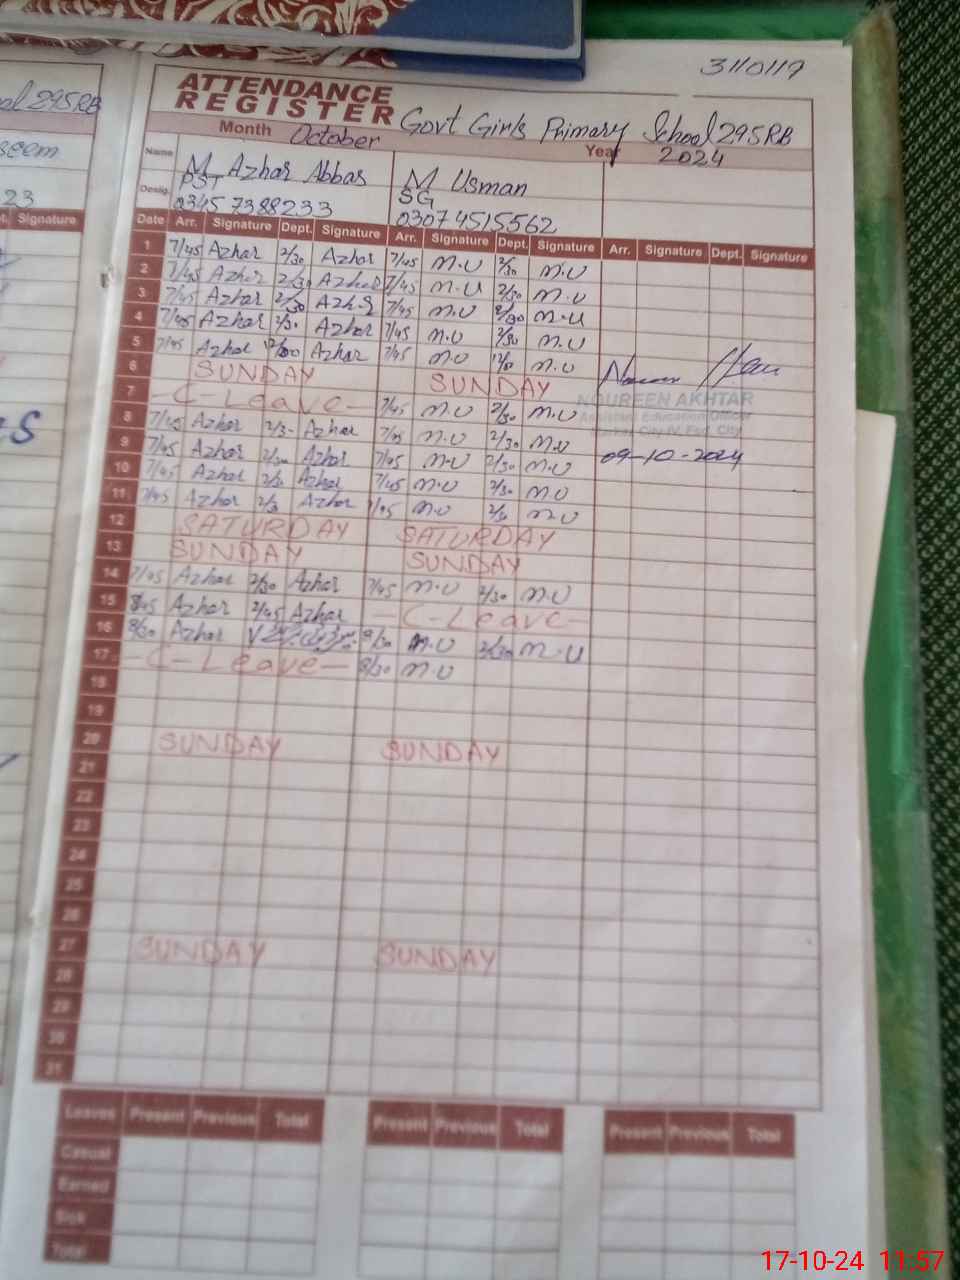 3110119
295RB
ATTENDANCE
REGISTER
Govt Girls Primary School 295RB
Month October Year 2024
Name M Azhar Abbas M Usman
seem
Desig. PST SG
0345 7388233 03074515562
23
Signature
Date Arr. Signature Dept. Signature Arr. Signature Dept. Signature Arr. Signature Dept. Signature
1 7/45 Azhar 2/30 Azhar 7/45 M.U 2/30 M.U
2 7/45 Azhar 2/30 Azhar 7/45 M.U 2/30 M.U
3 7/45 Azhar 2/30 7/45 M.U 2/30 M.U
4 7/45 Azhar 2/30 Azhar 7/45 M.U 2/30 M.U
5 7/45 Azhar 12/00 Azhar 7/45 M.U M.U
6 SUNDAY SUNDAY
7 -C-Leave- 7/45 M.U 2/30 M.U
NOUREEN AKHTAR
8 7/45 Azhar 2/30 Azhar 7/45 M.U 2/30 M.U
Assistant Education Officer
9 7/45 Azhar 2/30 Azhar 7/45 M.U 2/30 M.U
09-10-2024
10 7/45 Azhar 2/30 Azhar 7/45 M.U 2/30 M.U
11 7/45 Azhar 2/30 Azhar 7/45 M.U 2/30 M.U
12 SATURDAY SATURDAY
13 SUNDAY SUNDAY
14 7/45 Azhar 2/30 Azhar 7/45 M.U 2/30 M.U
15 8/45 Azhar 2/45 Azhar -C-Leave-
16 8/30 Azhar 8/30 M.U 2/30 M.U
17 -C-Leave- 8/30 M.U
18
19
20 SUNDAY SUNDAY
21
22
23
24
25
26
27 SUNDAY SUNDAY
28
29
30
31
Leaves Present Previous Total Present Previous Total Present Previous Total
Casual
Earned
Sick
Total
17-10-24 11:57